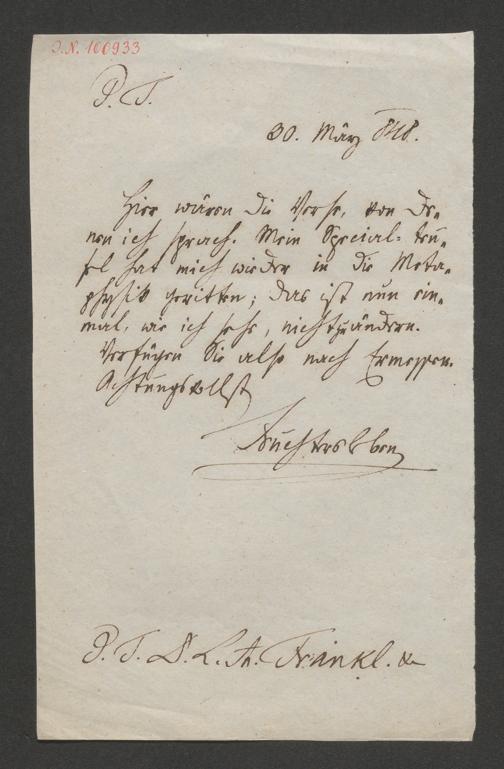 I.N. 100933
P. T.
30. März 848.
Hier wären die Verse, von de-
nen ich sprach. Mein Special-teu-
fel hat mich wieder in die Meta-
physik geritten; das ist nun ein-
mal, wie ich sehe, nicht zu ändern.
Verfügen Sie also nach Ermessen.
Achtungsvollst
Feuchtersleben
P. T. D. L. A. Frankl. &